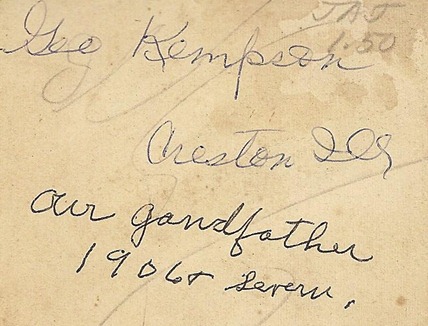 JAJ
1.50
Geo Kempson
Creston Ills
our gandfather
1906+ Severn.